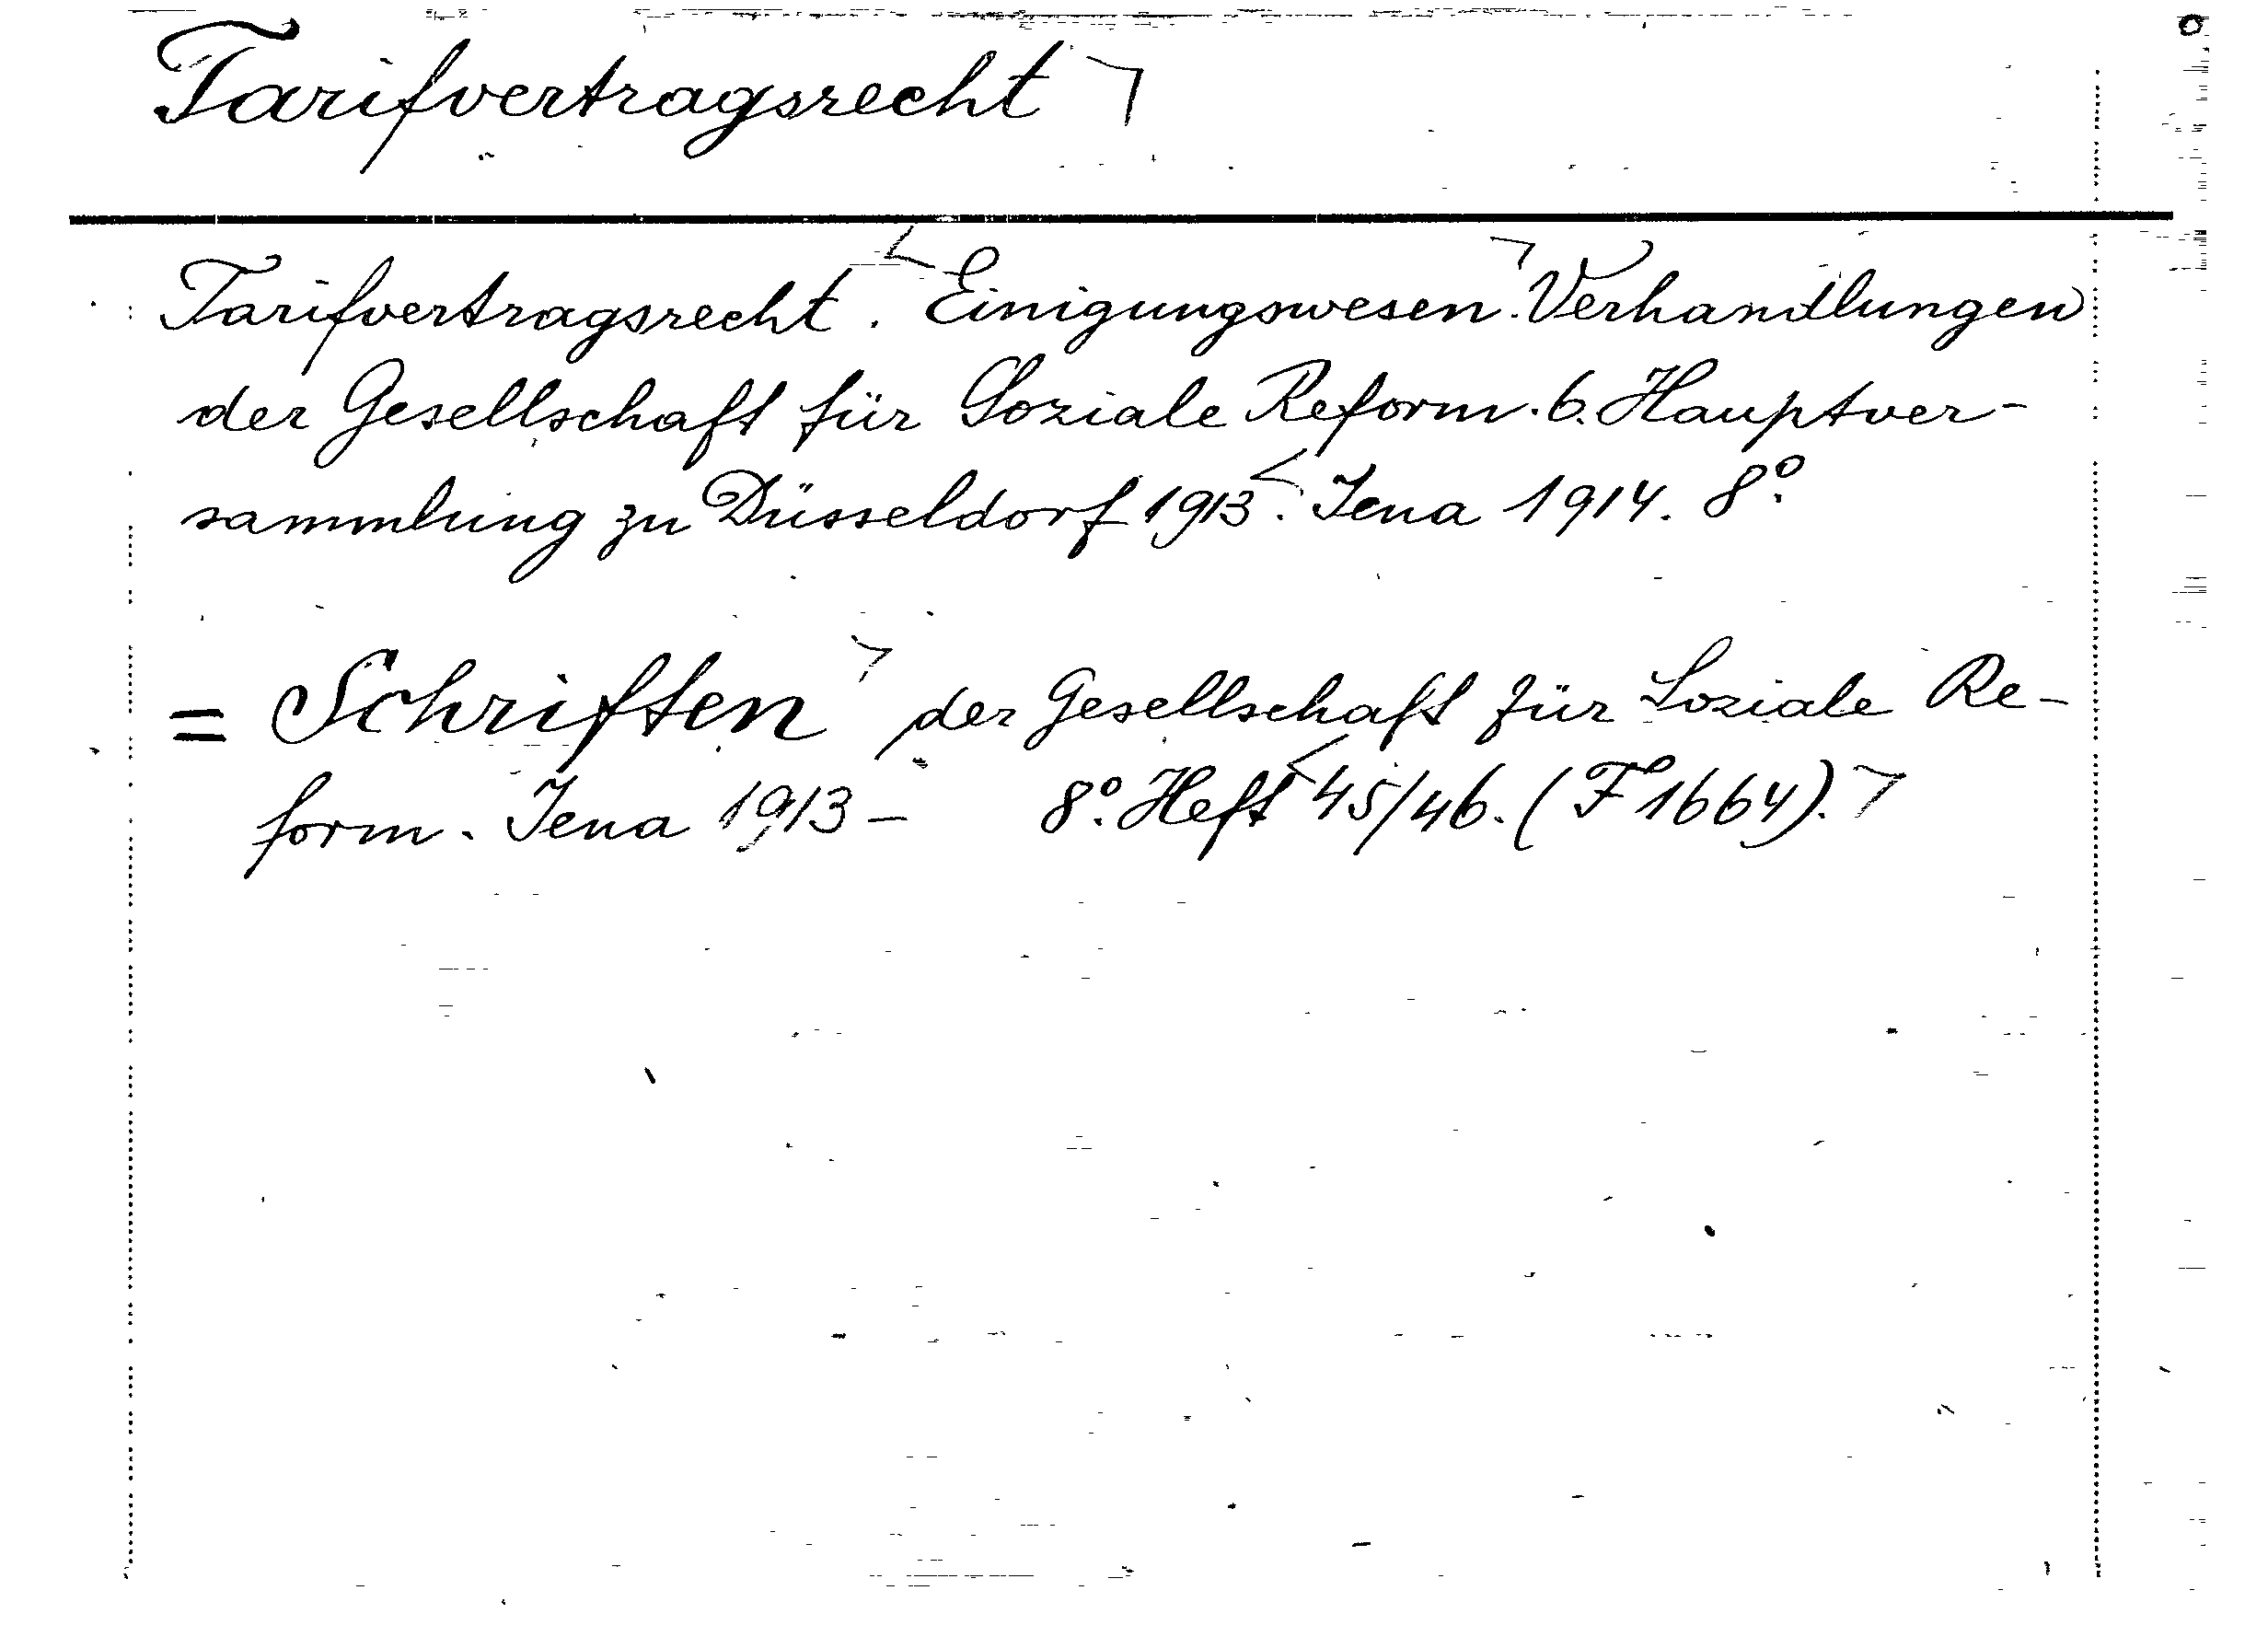 Tarifvertragsrecht
Tarifvertragsrecht. Einigungswesen. Verhandlungen
der Gesellschaft für Soziale Reform. 6. Hauptver-
sammlung zu Düsseldorf 1913. Jena 1914. 8°.
= Schriften der Gesellschaft für Soziale Re-
form. Jena 1913- 8°. Heft 45/46. (F 1664).